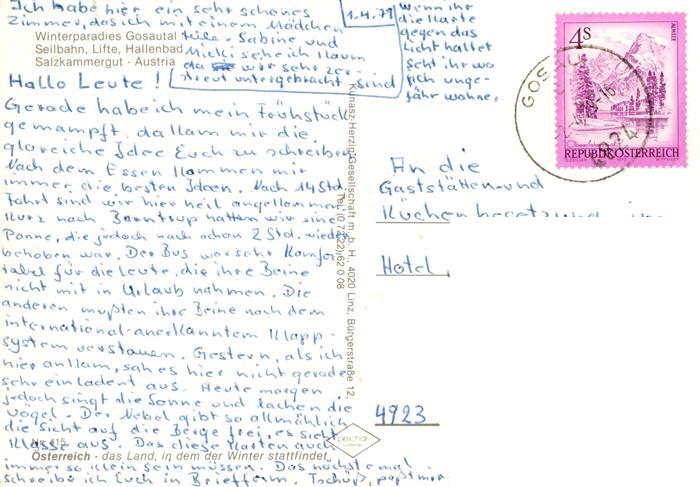 Ich habe hier ein sehr schönes
Zimmer, das ich mit einem Mädchen
teile. Sabine und
Micki sehe ich kaum
da wir sehr zer-
streut untergebracht sind
1.4.79
Wenn ihr
die Karte
gegen das
Licht haltet
seht ihr wo
ich unge-
fähr wohne.
Winterparadies Gosautal
Seilbahn, Lifte, Hallenbad
Salzkammergut - Austria
Hallo Leute!
Gerade habe ich mein Frühstück
gemampft, da kam mir die
gloreiche Idee Euch zu schreiben
Nach dem Essen kommen mir
immer die besten Ideen. Nach 14 Std.
Fahrt sind wir hier heil angekommen.
Kurz nach Barntrup hatten wir eine
Panne, die jedoch nach schon 2 Std. wieder
behoben war. Der Bus war sehr komfor-
tabel für die Leute, die ihre Beine
nicht mit in Urlaub nahmen. Die
anderen mußten ihre Beine nach dem
international-anerkanntem Klapp-
system verstauen. Gestern, als ich
hier ankam, sah es hier nicht gerade
sehr einladent aus. Heute morgen
jedoch singt die Sonne und lachen die
Vögel. Der Nebel gibt so allmählich
die Sicht auf die Berge frei, es sieht
Klasse aus. Das diese Karten auch
immer so klein sein müssen. Das nächste mal
schreibe ich Euch in Briefform. Tschüß, paßt mir
Nr. 415
Österreich - das Land, in dem der Winter stattfindet.
Kunasz-Herzig Gesellschaft m. b. H., 4020 Linz, Bürgerstraße 12,
Tel. (0 7222) 62 0 08
peichar
4S
ALMSEE
REPUBLIK ÖSTERREICH
GOSAU
4824
An die
Gaststätten-und
Küchenbesetzung
Hotel
4923